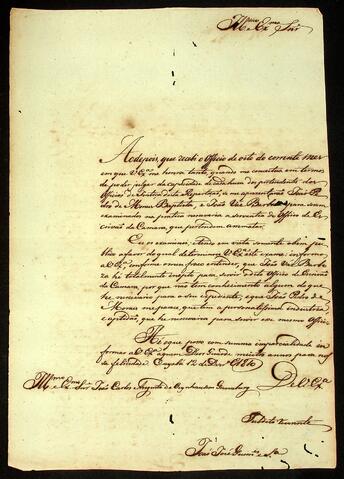 Illmo e Exmo Snr
Ao depois, que recebi o Officio de oito do corrente mez
em que VExa me honra tanto, quando me constitui em termos
de poder julgar da capacidade de cada hum dos pertendentes dos
Officios da Repartição, se me apresentarão João Pe
dro de Moraes Baptista, e João Vaz Barboza para serem
examinados na pratica necessaria a serventia do Officio de Es
crivão da Camara, que pertendem arrematar.
Eu os examinei, e tendo em vista somente o bem pu
blico a favor do qual determinou VExa este exame, informo
a VExa, conforme a minha consciencia, que João Vaz Barbo
za he totalmente inepto para servir o dito Officio de Escrivão
da Camara, por que não tem conhecimento algum do que
he necessario para o seu expediente, e que João Pedro de
Moraes me parece, que tem a pessoal
e aptidão, que he necessaria para servir esse mesmo Officio
He o que posso com summa imparcialidade in
formar a VExa a quem Deos Guarde muitos annos para nos
sa felicidade. Cuyabá 12 de Dezro 1810
Illmo e Exmo Snr João Carlos Augusto de Oeynhausen Gravenberg
De VExa
Subdito
José